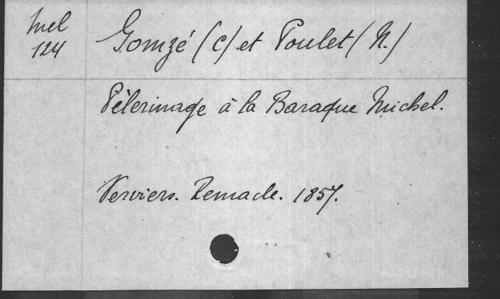 Mel
124
Gomzé (C) et Poulet (N.)
Pèlerinage à la Baraque Michel.
Verviers. Remacle. 1857.